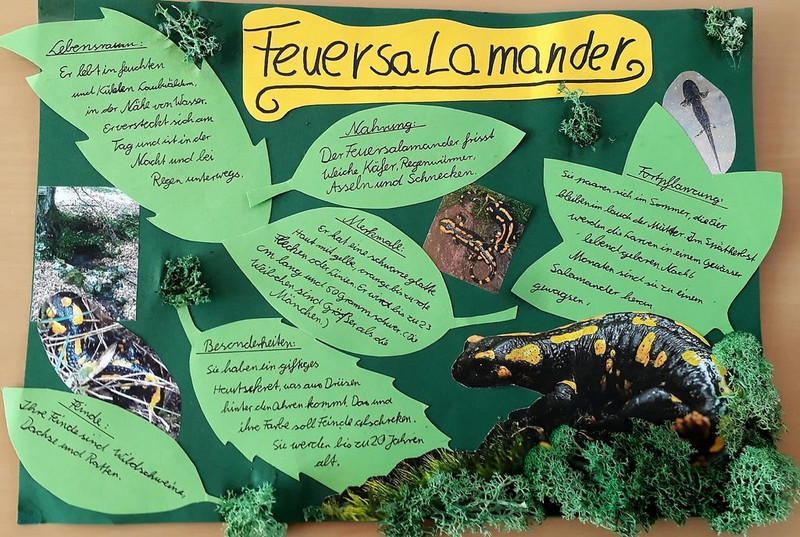 Feuersalamander
Lebensraum:
Er lebt in feuchten
und kühlen Laubwäldern,
in der Nähe von Wasser.
Er versteckt sich am
Tag und ist in der
Nacht und bei
Regen unterwegs.
Nahrung:
Der Feuersalamander frisst
Weiche Käfer, Regenwürmer,
Asseln und Schnecken.
Fortpflanzung:
Sie paaren sich im Sommer, die Eier
bleiben im bauch der Mutter. Im Spätherbst
werden die Larven in einem Gewässer
lebend geboren. Nach
Monaten sind sie zu einem
Salamander heran
gewagsen.
Merkmale:
Er hat eine schwarze glatte
Haut mit gelbe, orange bis rote
Flecken oder Linien. Er wird bis zu 23
cm lang und 50 gramm schwer. (Die
Weibchen sind Größer als die
Mänchen)
Besonderheiten:
Sie haben ein giftiges
Hautsekret, was aus Drüsen
hinter den Ohren kommt. Das und
ihre Farbe soll Feinde abschrecken.
Sie werden bis zu 20 Jahren
alt.
Feinde:
Ihre Feinde sind Wildschweine,
Dachse und Ratten.